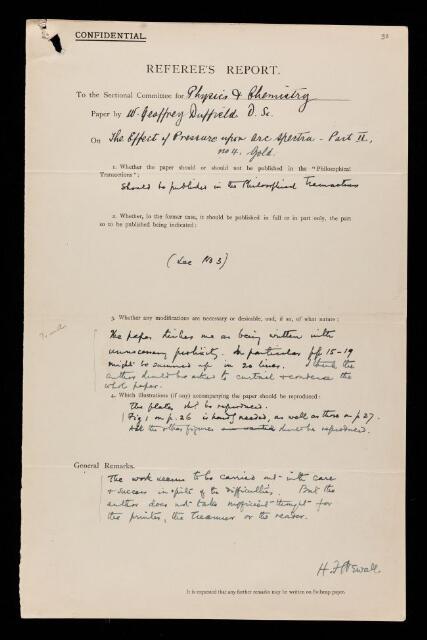 CONFIDENTIAL.
30
REFEREE'S REPORT.
To the Sectional Committee for Physics & Chemistry
Paper by W. Geoffrey Duffield D. Sc.
On The Effect of Pressure upon arc spectra - Part II,
no 4. Gold.
1. Whether the paper should or should not be published in the "Philosophical
Transactions":
Should be published in the Philosophical Transactions
2. Whether, in the former case, it should be published in full or in part only, the part
so to be published being indicated:
(See No 3)
3. Whether any modifications are necessary or desirable, and, if so, of what nature:
The paper strikes me as being written with
unnecessary prolixity. In particular pp 15-19
might be summed up in 20 lines. I think the
author should be asked to curtail & condense the
whole paper.
4. Which illustrations (if any) accompanying the paper should be reproduced:
The plates shd be reproduced.
Fig 1 on p. 26 is hardly needed, as well as those on p 27.
All the other figures should be reproduced.
General Remarks.
The work seems to be carried out with care
& success in spite of the difficulties. But the
author does not take sufficient thought for
the printer, the treasurer or the reader.
H. F. Newall.
It is requested that any further remarks may be written on foolscap paper.